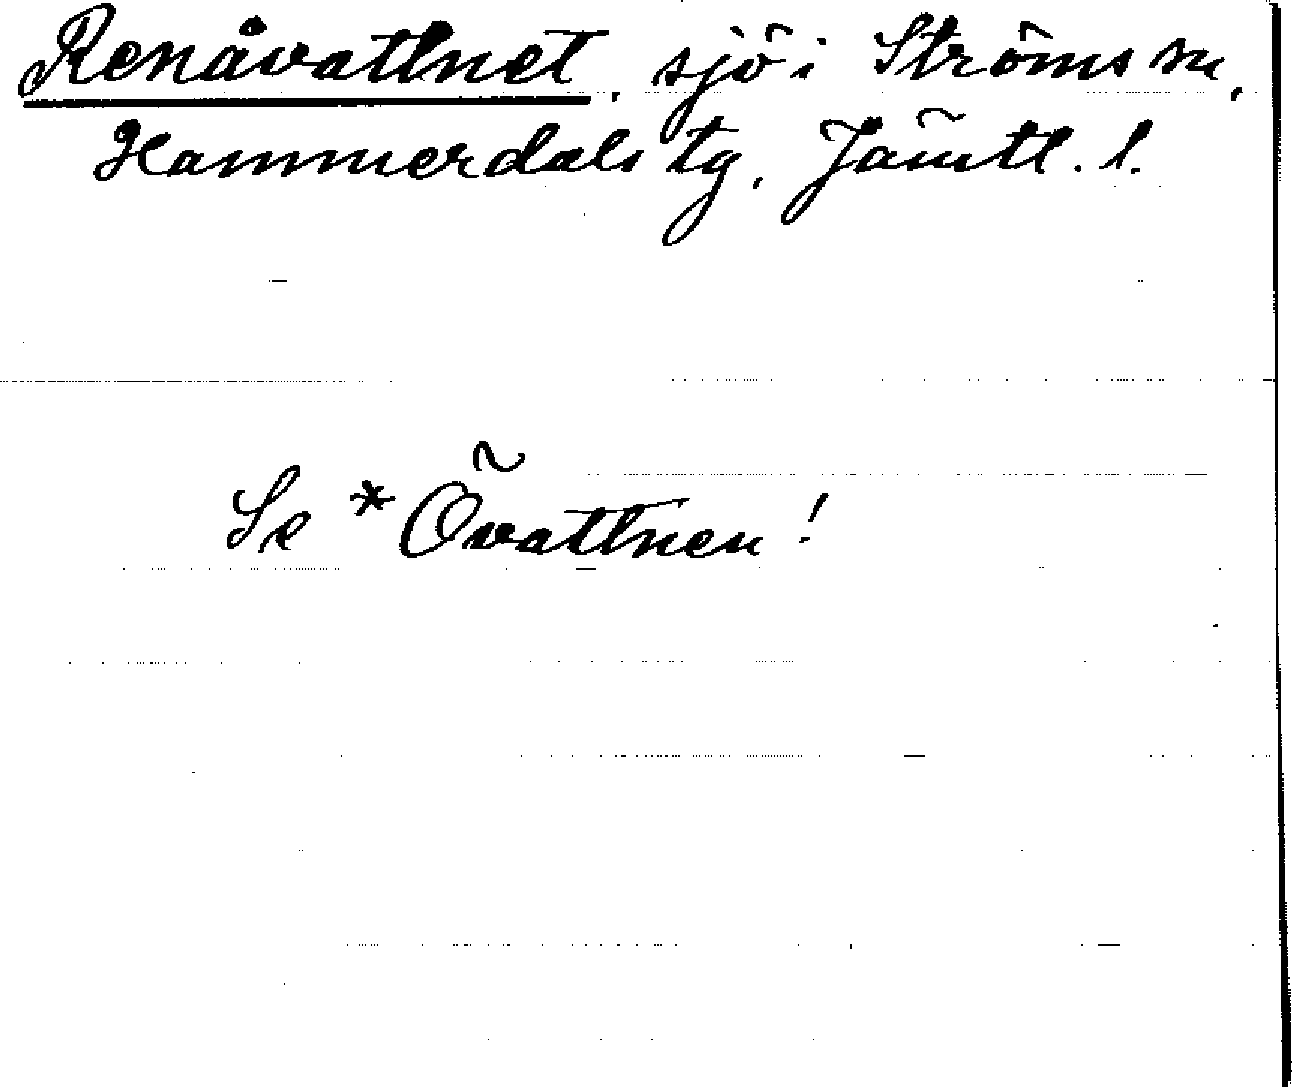 Renåvattnet, sjö i Ströms sn,
Hammerdals tg, Jämtl. l.
Se *Övattnen!